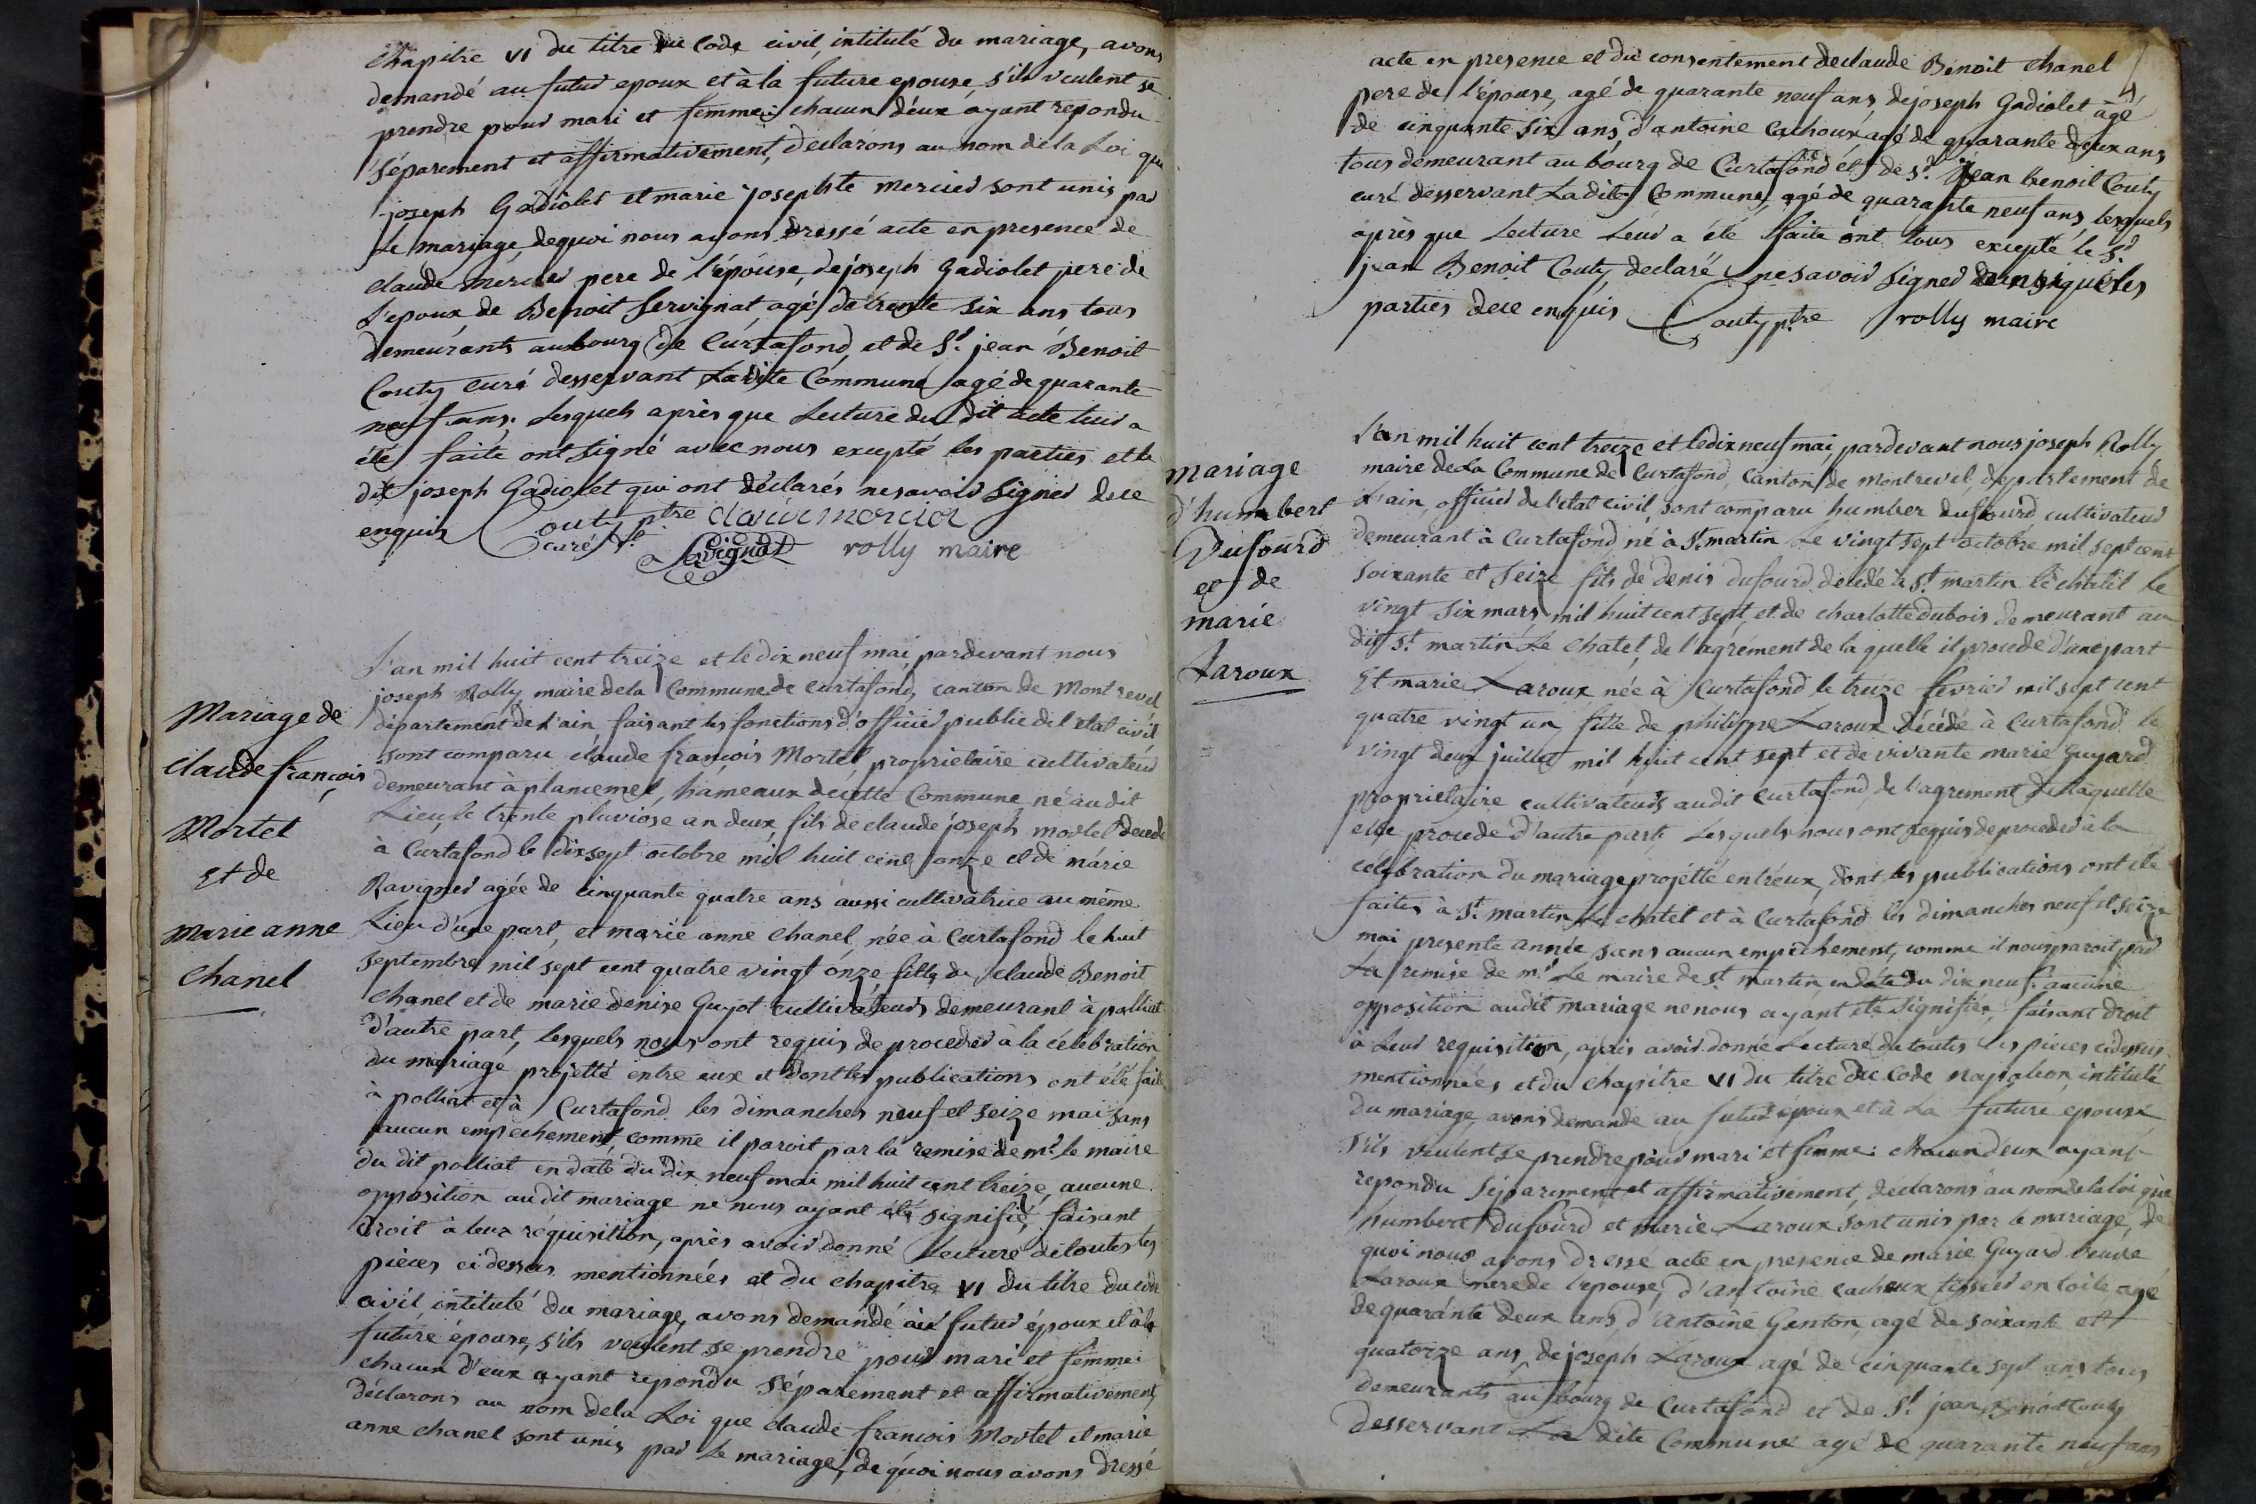 chapitre VI du titre du Code civil, intitulé du mariage, avons
demandé au futur epoux et à la future epouse, s'ils veulent se
prendre pour mari et femme: chacun d'eux ayant repondu
séparement et affirmativement, declarons au nom de la Loi que
joseph Gadiolet et marie josephte mercier sont unis par
le mariage, dequoi nous avons dressé acte en presence de
claude mercier pere de l'épouse, de joseph Gadiolet pere de
L'epoux de Benoit Servignat agé de trente six ans tous
demeurants au bourg de Curtafond, et de Sr. jean Benoit
Couty curé desservant Ladite Commune agé de quarante
neuf ans, Lesquels après que Lecture du dit acte leur a
été faite ont signé avec nous excepté les parties et le
dit joseph Gadiolet qui ont déclarés ne savoir signer de ce
enquis Couty ptre claude mercier
curé
Servignat rolly maire
Mariage de
claude françois
Mortel
Et de
Marie anne
chanel
L'an mil huit cent treize et le dix neuf mai, pardevant nous
joseph Rolly maire de la Commune de Curtafond, canton de Montrevel
département de L'ain, faisant les fonctions d'officier public de l'état civil
sont comparu claude françois Mortel, proprietaire cultivateur
demeurant à plancemel, hameaux de cette Commune, né au dit
Lieu, le trente pluviose an deux, fils de claude joseph mortel décédé
à Curtafond le dixsept octobre mil huit cent onze et de marie
Ravignier agée de cinquante quatre ans aussi cultivatrice au même
Lieu d'une part, et marie anne chanel, née à Curtafond le huit
septembre mil sept cent quatre vingt onze fille de claude Benoit
chanel et de marie denise Guyot cultivateurs demeurant à polliat
d'autre part, lesquels nous ont requis de proceder à la célébration
du mariage projetté entre eux et dont les publications ont été faites
à polliat et à Curtafond les dimanches neuf et seize mai sans
aucun empechement, comme il paroit par la remise de mr. le maire
du dit polliat en date du dix neuf mai mil huit cent treize, aucune
opposition au dit mariage ne nous ayant été signifié, faisant
droit à leur réquisition, après avoir donné Lecture de toutes les
pièces ci dessus mentionnées et du chapitre VI du titre du code
civil intitulé du mariage, avons demandé au futur époux et à la
future épouse, s'ils veulent se prendre pour mari et femme:
chacun d'eux ayant repondu séparement et affirmativement,
déclarons au nom de la Loi que claude françois Mortel et marie
anne chanel sont unis par le mariage, de quoi nous avons dressé
4
acte en presence et du consentement de claude Benoit chanel
pere de l'épouse, agé de quarante neuf ans de joseph Gadiolet agé
de cinquante six ans, d'antoine Cachoux agé de quarante deux ans
tous demeurant au bourg de Curtafond et de Sr. jean benoit Couty
curé desservant Ladite Commune, agé de quarante neuf ans, lesquels
après que Lecture Leur a été faite ont tous excepté le Sr.
jean Benoit Couty, declaré ne savoir signer ainsi que les
parties de ce enquis Couty ptre rolly maire
Mariage
d'humbert
Dufourd
et de
marie
Laroux
L'an mil huit cent treize et le dix neuf mai, pardevant nous joseph Rolly,
maire de La Commune de Curtafond, Canton de Montrevel, département de
L'ain, officier de l'etat civil, sont comparu humber dufourd cultivateur
demeurant à Curtafond, né à St. martin Le vingt sept octobre mil sept cent
soixante et seize fils de denis dufourd décédé à St. martin le chatel le
vingt six mars mil huit cent sept, et de charlotte dubois demeurant au
dit St. martin Le Chatel, de l'agrément de la quelle il procede d'une part
Et marie Laroux née à Curtafond le treize fevrier mil sept cent
quatre vingt un fille de philippe Laroux décédé à Curtafond le
vingt deux juillet mil huit cent sept et de vivante marie Guyard
proprietaire cultivateurs audit Curtafond de l'agrement de Laquelle
elle procede d'autre part Lesquels nous ont requis de proceder à la
célébration du mariage projetté entr'eux, dont les publications ont été
faites à St. martin Le chatel et à Curtafond les dimanches neuf et seize
mai presente année sans aucun empêchement, comme il nous paroit par
La remise de mr. Le maire de St. martin, en date du dix neuf. aucune
opposition au dit mariage ne nous ayant été signifiée, faisant droit
à Leur requisition, après avoir donné Lecture de toutes les pièces ci dessus
mentionnées et du chapitre VI du titre du Code napoléon, intitulé
du mariage, avons demandé au futur époux et à La future épouse,
s'ils veulent se prendre pour mari et femme: chacun d'eux ayant
repondu séparement et affirmativement, déclarons au nom de la loi que
humbert dufourd et marie Laroux sont unis par le mariage, de
quoi nous avons dressé acte en presence de marie Guyard veuve
Laroux mere de l'epouse, d'antoine cachoux tissier en toile agé
de quarante deux ans, d'antoine Genton agé de soixante et
quatorze ans, de joseph Laroux agé de cinquante sept ans tous
demeurants au bourg de Curtafond et de Sr. jean Benoit Couty
desservant La dite Commune agé de quarante neuf ans